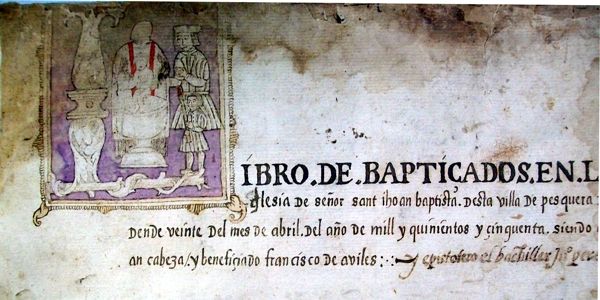 LIBRO.DE.BAPTICADOS.EN.L
iglesia de señor sant ihoan baptista. desta villa de pesquera
dende veinte del mes de abril. del año de mill y quinientos y çinquenta. siendo
an cabeza/y beneficiado francisco de aviles: y epistolero el bachiller ju° pere